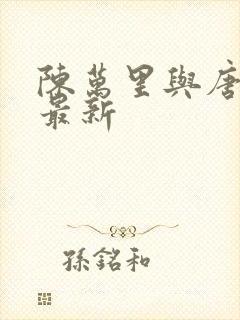 陳萬里與唐
最新
孫銘和